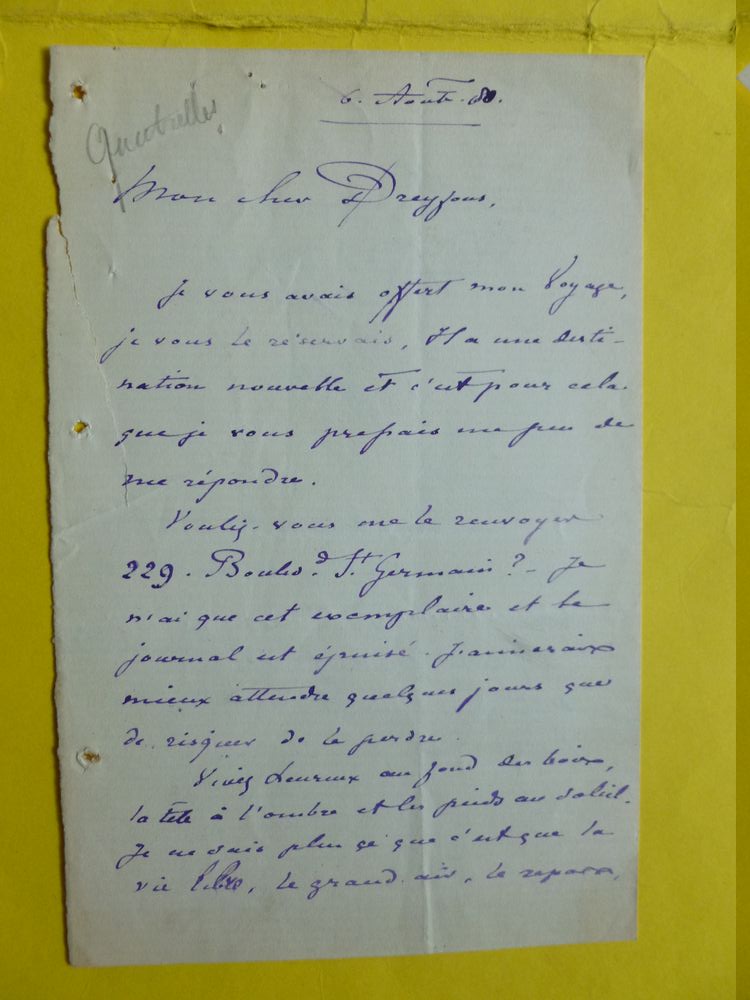 6. Août. 80.
Quatrelles
Mon cher Dreyfous,
Je vous avais offert mon Voyage,
je vous le réservais, Il a une desti-
nation nouvelle et c'est pour cela
que je vous pressais un peu de
me répondre.
Voulez-vous me le renvoyer
229. Boulvd. St Germain? - Je
n'ai que cet exemplaire et le
journal est épuisé. J'aimerais
mieux attendre quelques jours que
de risquer de le perdre.
Vivez heureux au fond des bois,
la tête à l'ombre et les pieds au soleil.
Je ne sais plus ce que c'est que la
vie libre, le grand air, le repos,